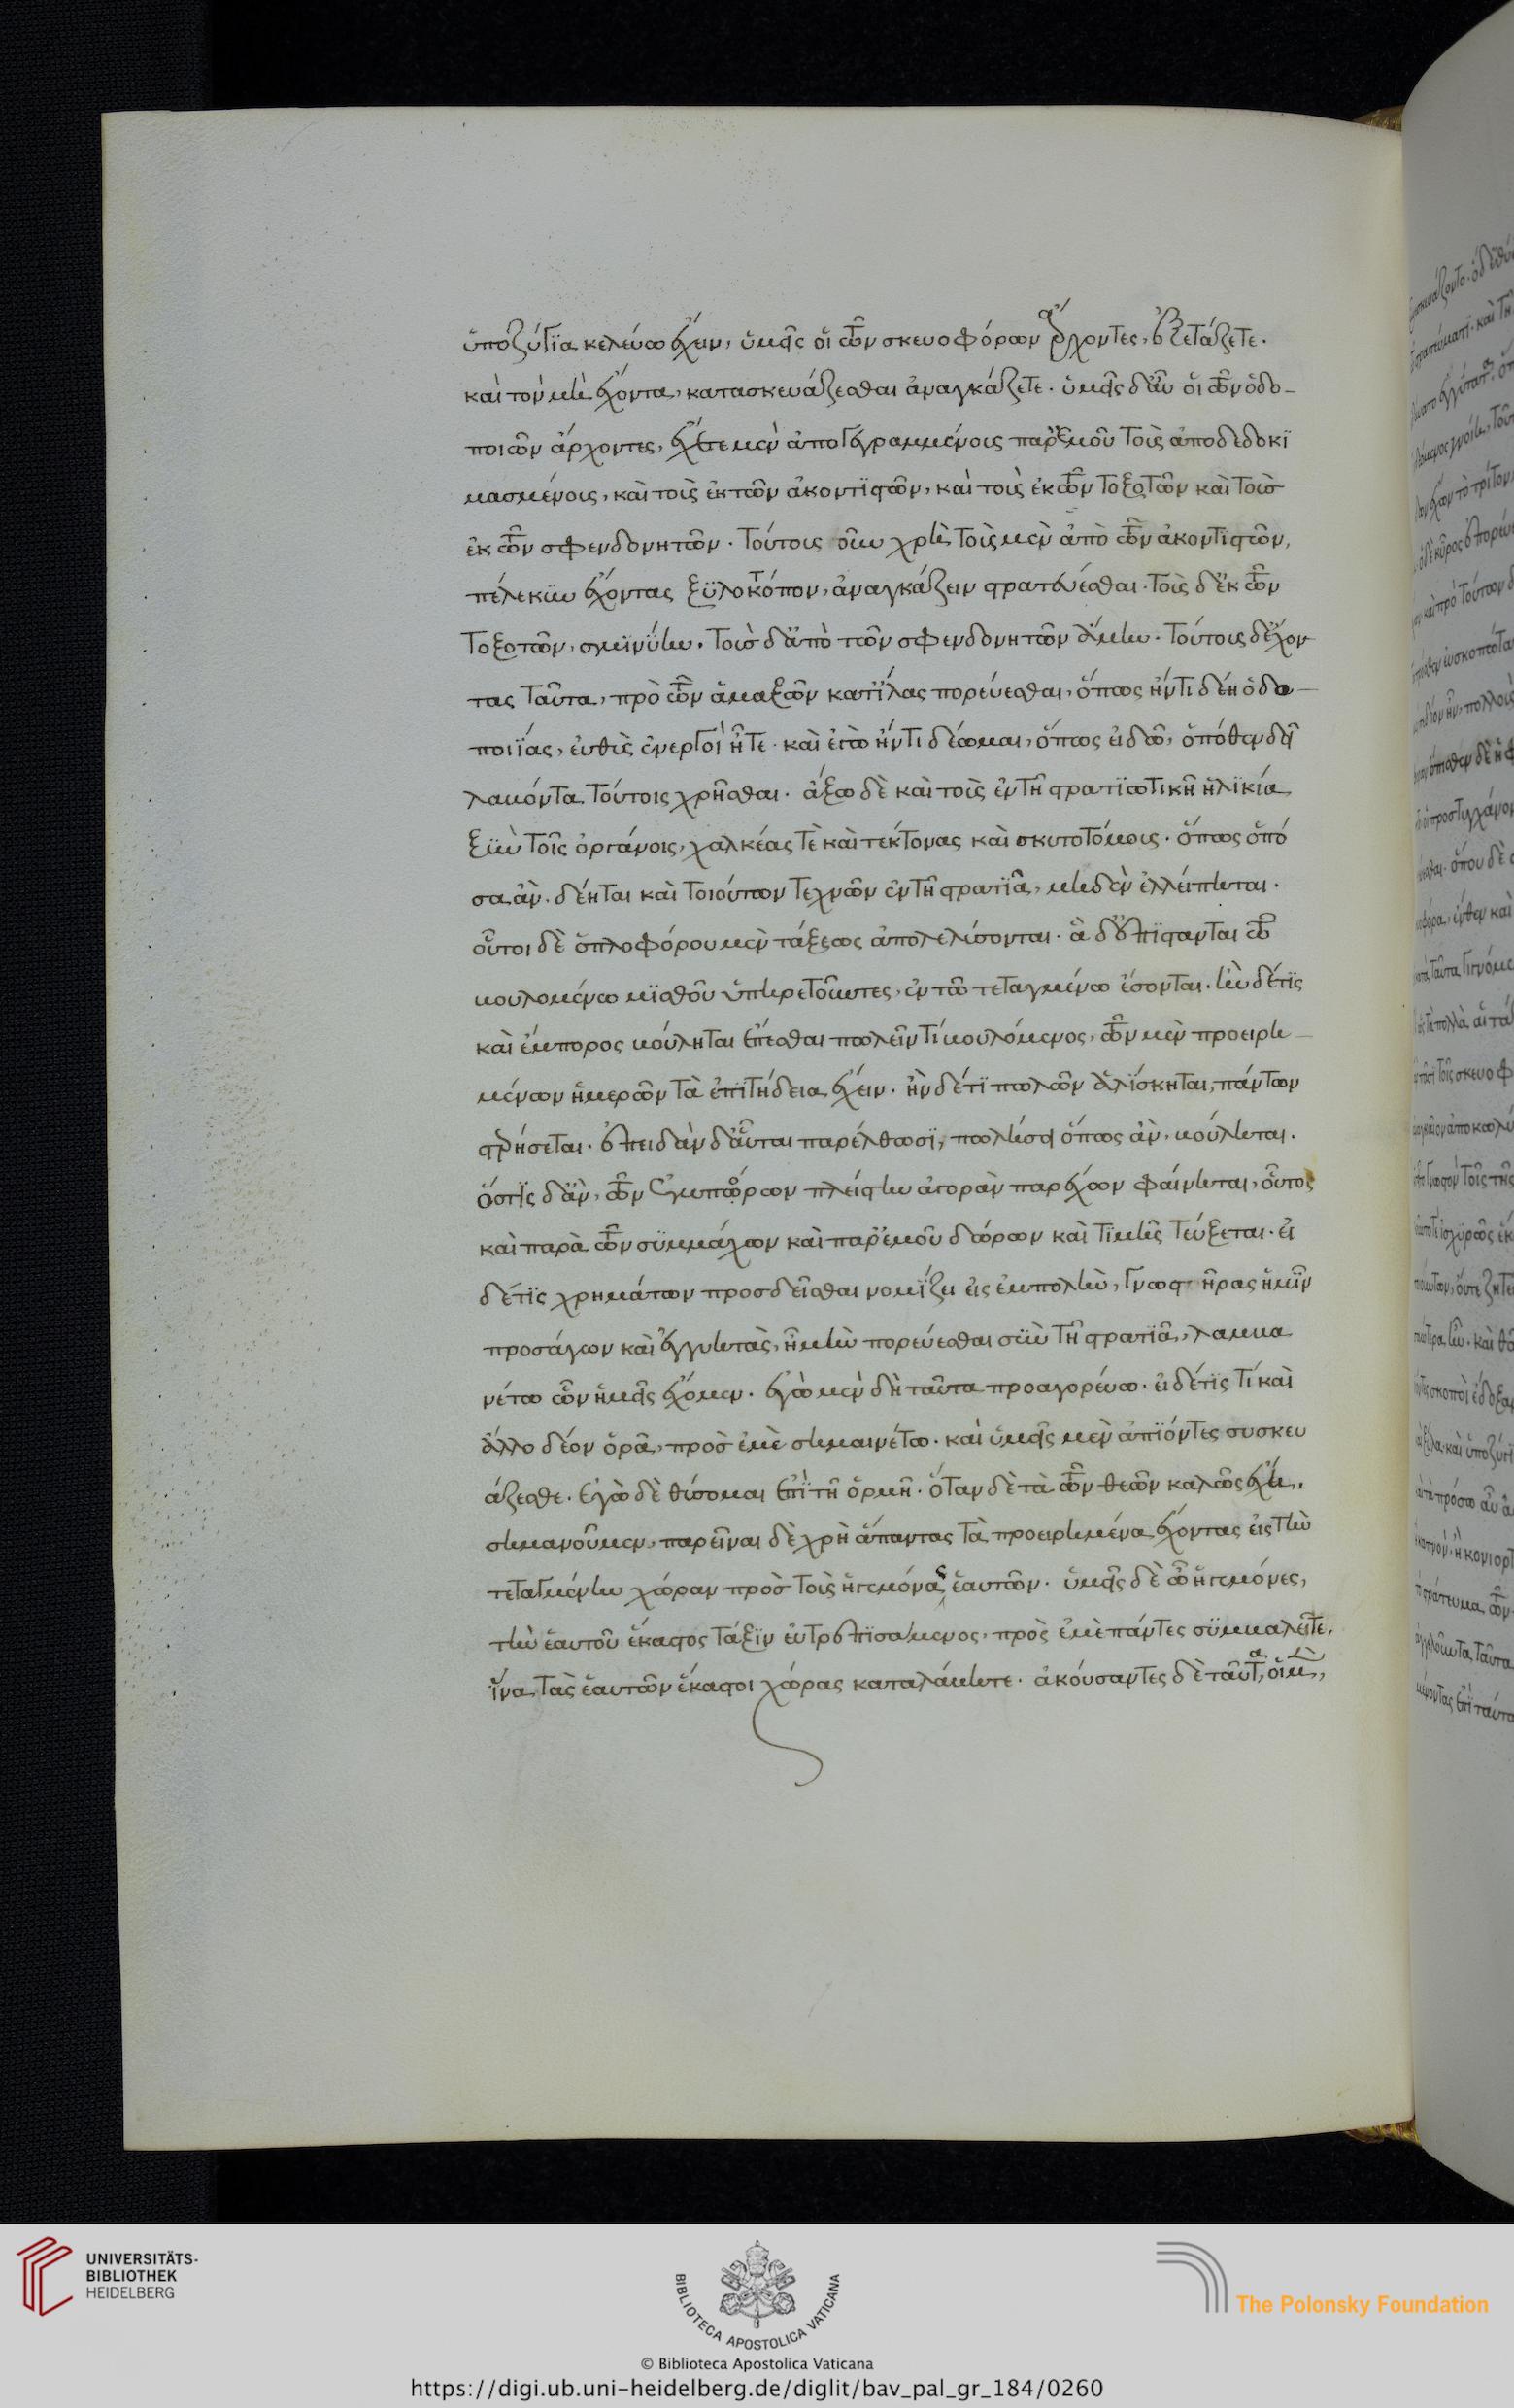 ὑποζύγϊα κελεύω ἔχειν, ὑμεῖς οἱ τῶν σκευοφόρων ἄρχοντες, ἐξετάζετε.
καὶ τὸν μὴ ἔχοντα, κατασκευάζεσθαι ἀναγκάζετε. ὑμεῖς δ' αὖ οἱ τῶν ὁδο-
ποιῶν ἄρχοντες, ἔχετε μὲν ἀπογεγραμμένους παρ' ἐμοῦ τοὺς ἀποδεδοκϊ
μασμένους, καὶ τοὺς ἐκ τῶν ἀκοντϊστῶν, καὶ τοὺς ἐκ τῶν τοξοτῶν καὶ τοὺς
ἐκ τῶν σφενδονητῶν. τούτους οὖν χρὴ τοὺς μὲν ἀπὸ τῶν ἀκοντιστῶν,
πέλεκϋν ἔχοντας ξϋλοκόπον, ἀναγκάζειν στρατεύεσθαι. τοὺς δ' ἐκ τῶν
τοξοτῶν, σμϊνύην. τοὺς δ' ἀπὸ τῶν σφενδονητῶν ἄμην. τούτους δ' ἔχον
τας ταῦτα, πρὸ τῶν ἁμαξῶν κατ' ἴλας πορεύεσθαι, ὅπως ἤν τι δέῃ ὁδο-
ποιϊας, εὐθὺς ἐνεργοὶ ἦτε. καὶ ἐγὼ ἤν τι δέωμαι, ὅπως εἰδῶ, ὁπόθεν δεῖ
λαβόντα τούτοις χρῆσθαι. ἄξω δὲ καὶ τοὺς ἐν τῇ στρατϊωτικῇ ἡλϊκία
ξὺν τοῖς ὀργάνοις, χαλκέας τὲ καὶ τέκτονας καὶ σκυτοτόμους. ὅπως ὁπό
σα ἀν. δέηται καὶ τοιούτων τεχνῶν ἐν τῇ στρατϊᾶ, μηδὲν ἐλλείπηται.
οὗτοι δὲ ὁπλοφόρου μὲν τάξεως ἀπολελύσονται. ἃ δ' ἐπϊστανται τῶ
βουλομένω μϊσθοῦ ὑπηρετοῦντες, ἐν τῶ τεταγμένω ἔσονται. ἢν δέ τϊς
καὶ ἔμπορος βούληται ἕπεσθαι πωλεῖν τί βουλόμενος, τῶν μὲν προειρη-
μένων ἡμερῶν τὰ ἐπϊτήδεια ἔχειν. ἢν δέ τϊ πωλῶν ἁλϊσκηται, πάντων
στερήσεται. ἐπειδὰν δ' αὗται παρέλθωσϊ, πωλήσει ὅπως ἀν. βούληται.
ὅστϊς δ' ἀν, τῶν ἐμπόρων πλείστην ἀγορὰν παρέχων φαίνηται, οὗτος
καὶ παρὰ τῶν σϋμμάχων καὶ παρ' ἐμοῦ δώρων καὶ τϊμῆς τεύξεται. εἰ
δέ τϊς χρημάτων προσδεῖσθαι νομϊζει εἰς ἐμπολὴν, γνωστῆρας ἡμῖν
προσάγων καὶ ἐγγυητὰς, ἦ μὴν πορεύεσθαι σϋν τῇ στρατϊᾶ, λαμβα
νέτω ὧν ἡμεῖς ἔχομεν. ἐγὼ μὲν δὴ ταῦτα προαγορεύω. εἰ δέ τϊς τί καὶ
ἄλλο δέον ὁρᾶ, πρὸς ἐμὲ σημαινέτω. καὶ ὑμεῖς μὲν ἀπϊόντες συσκευ
άζεσθε. ἐγὼ δὲ θύσομαι ἐπὶ τῇ ὁρμῇ. ὅταν δὲ τὰ τῶν θεῶν καλῶς ἔχῃ,
σημανοῦμεν, παρεῖναι δὲ χρὴ ἅπαντας τὰ προειρημένα ἔχοντας εἰς τὴν
τεταγμένην χώραν πρὸς τοὺς ἡγεμόνας ἑαυτῶν. ὑμεῖς δὲ ὦ ἡγεμόνες,
τὴν ἑαυτοῦ ἕκαστος τάξϊν εὐτρεπϊσάμενος, πρὸς ἐμὲ πάντες σϋμβαλεῖτε,
ἵνα τὰς ἑαυτῶν ἕκαστοι χώρας καταλάβητε. ἀκούσαντες δὲ ταῦτα, οἱ μὲν,
UNIVERSITÄTS-
BIBLIOTHEK
HEIDELBERG
BIBLIOTECA APOSTOLICA VATICANA
The Polonsky Foundation
© Biblioteca Apostolica Vaticana
https://digi.ub.uni-heidelberg.de/diglit/bav_pal_gr_184/0260